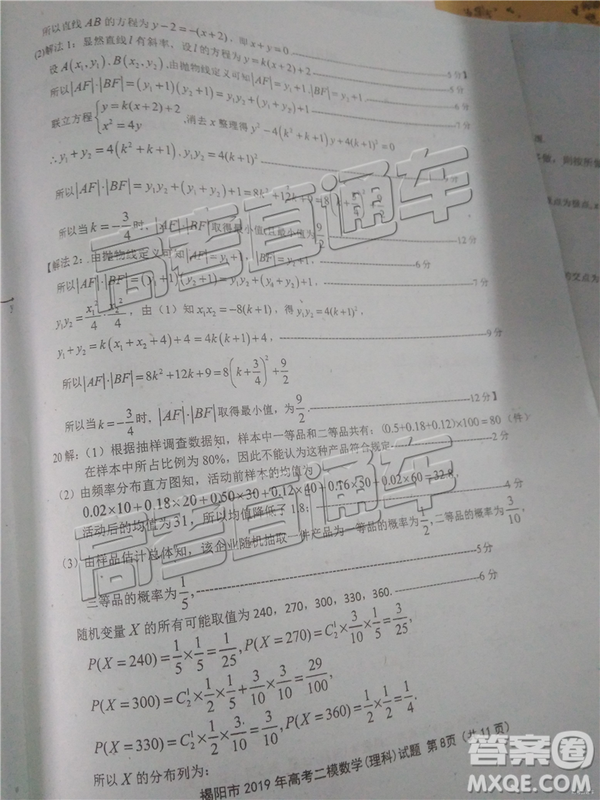 所以直线 AB 的方程为 y−2=−(x+2)，即 x+y=0
(2)解法 1：显然直线 l 有斜率，设 l 的方程为 y=k(x+2)+2 5分
设 A(x₁,y₁), B(x₂,y₂), 由抛物线定义可知 |AF|=y₁+1, |BF|=y₂+1
所以|AF|·|BF|=(y₁+1)(y₂+1)=y₁y₂+(y₁+y₂)+1 6分
联立方程{y=k(x+2)+2 x²=4y ,消去 x 整理得 y²−4(k²+k+1)y+4(k+1)²=0 7分
∴y₁+y₂=4(k²+k+1), y₁y₂=4(k+1)²
所以|AF|·|BF|=y₁y₂+(y₁+y₂)+1=8k²+12k+9
所以当 k=−3/4 时，|AF|·|BF|取得最小值，且最小值为 9/2
【解法 2：由抛物线定义可知 |AF|=y₁+1, |BF|=y₂+1, 6分
所以|AF|·|BF|=(y₁+1)(y₂+1)=y₁y₂+(y₁+y₂)+1, 7分
y₁y₂=x₁²/4·x₂²/4，由（1）知 x₁x₂=−8(k+1)，得 y₁y₂=4(k+1)²,
y₁+y₂=k(x₁+x₂+4)+4=4k(k+1)+4, 9分
所以|AF|·|BF|=8k²+12k+9=8(k+3/4)²+9/2
所以当 k=−3/4 时，|AF|·|BF|取得最小值，为 9/2. 12分】
20 解：（1）根据抽样调查数据知，样本中一等品和二等品共有：(0.5+0.18+0.12)×100=80（件）
在样本中所占比例为 80%，因此不能认为这种产品符合规定. 2分
（2）由频率分布直方图知，活动前样本的均值为
0.02×10+0.18×20+0.50×30+0.12×40+0.16×50+0.02×60=32.8,
活动后的均值为 31，所以均值降低了 1.8； 4分
（3）由样品估计总体知，该企业随机抽取一件产品为一等品的概率为 1/2，二等品的概率为 3/10，
二等品的概率为 1/5, 5分
随机变量 X 的所有可能取值为 240，270，300，330，360. 6分
P(X=240)=1/5×1/5=1/25, P(X=270)=C₂¹×3/10×1/5=3/25,
P(X=300)=C₂¹×1/2×1/5+3/10×3/10=29/100,
P(X=330)=C₂¹×1/2×3/10=3/10, P(X=360)=1/2×1/2=1/4
所以 X 的分布列为：
揭阳市 2019 年高考二模数学(理科)试题 第 8页（共 11 页）
高考直通车
高考直通车
答案圈
MXQE.COM